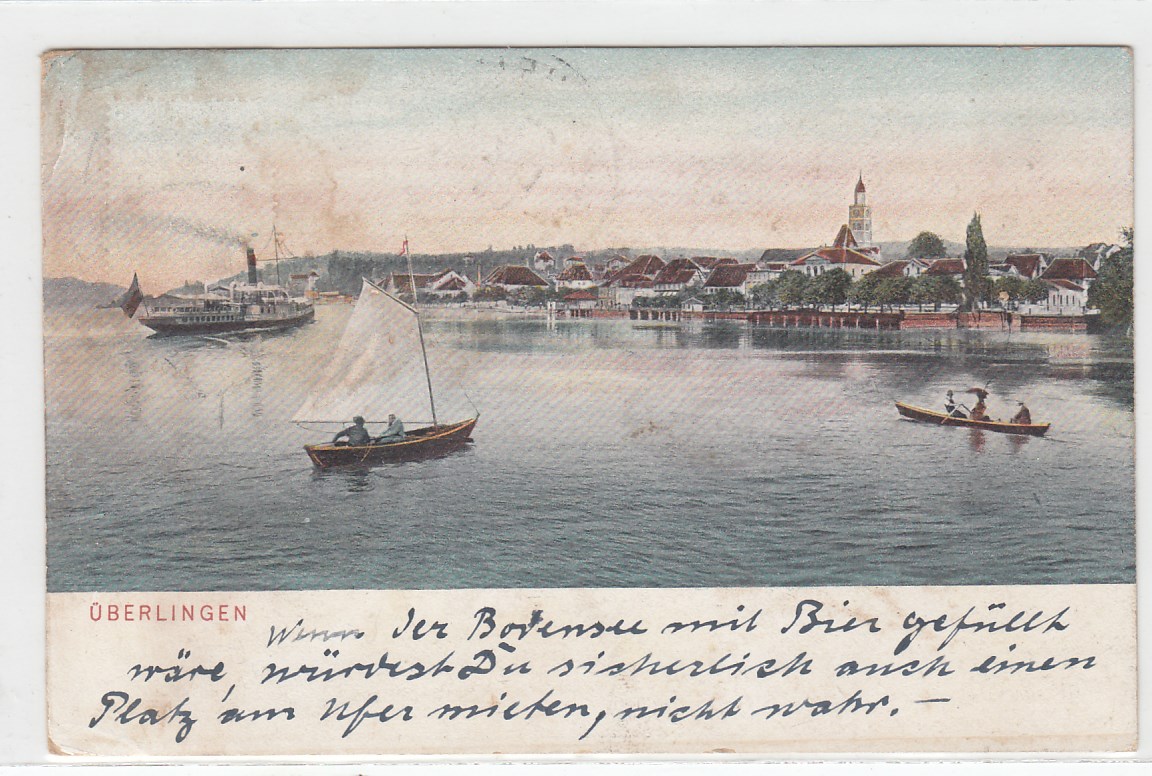 ÜBERLINGEN
Wenn der Bodensee mit Bier gefüllt
wäre, würdest Du sicherlich auch einen
Platz am Ufer mieten, nicht wahr. —